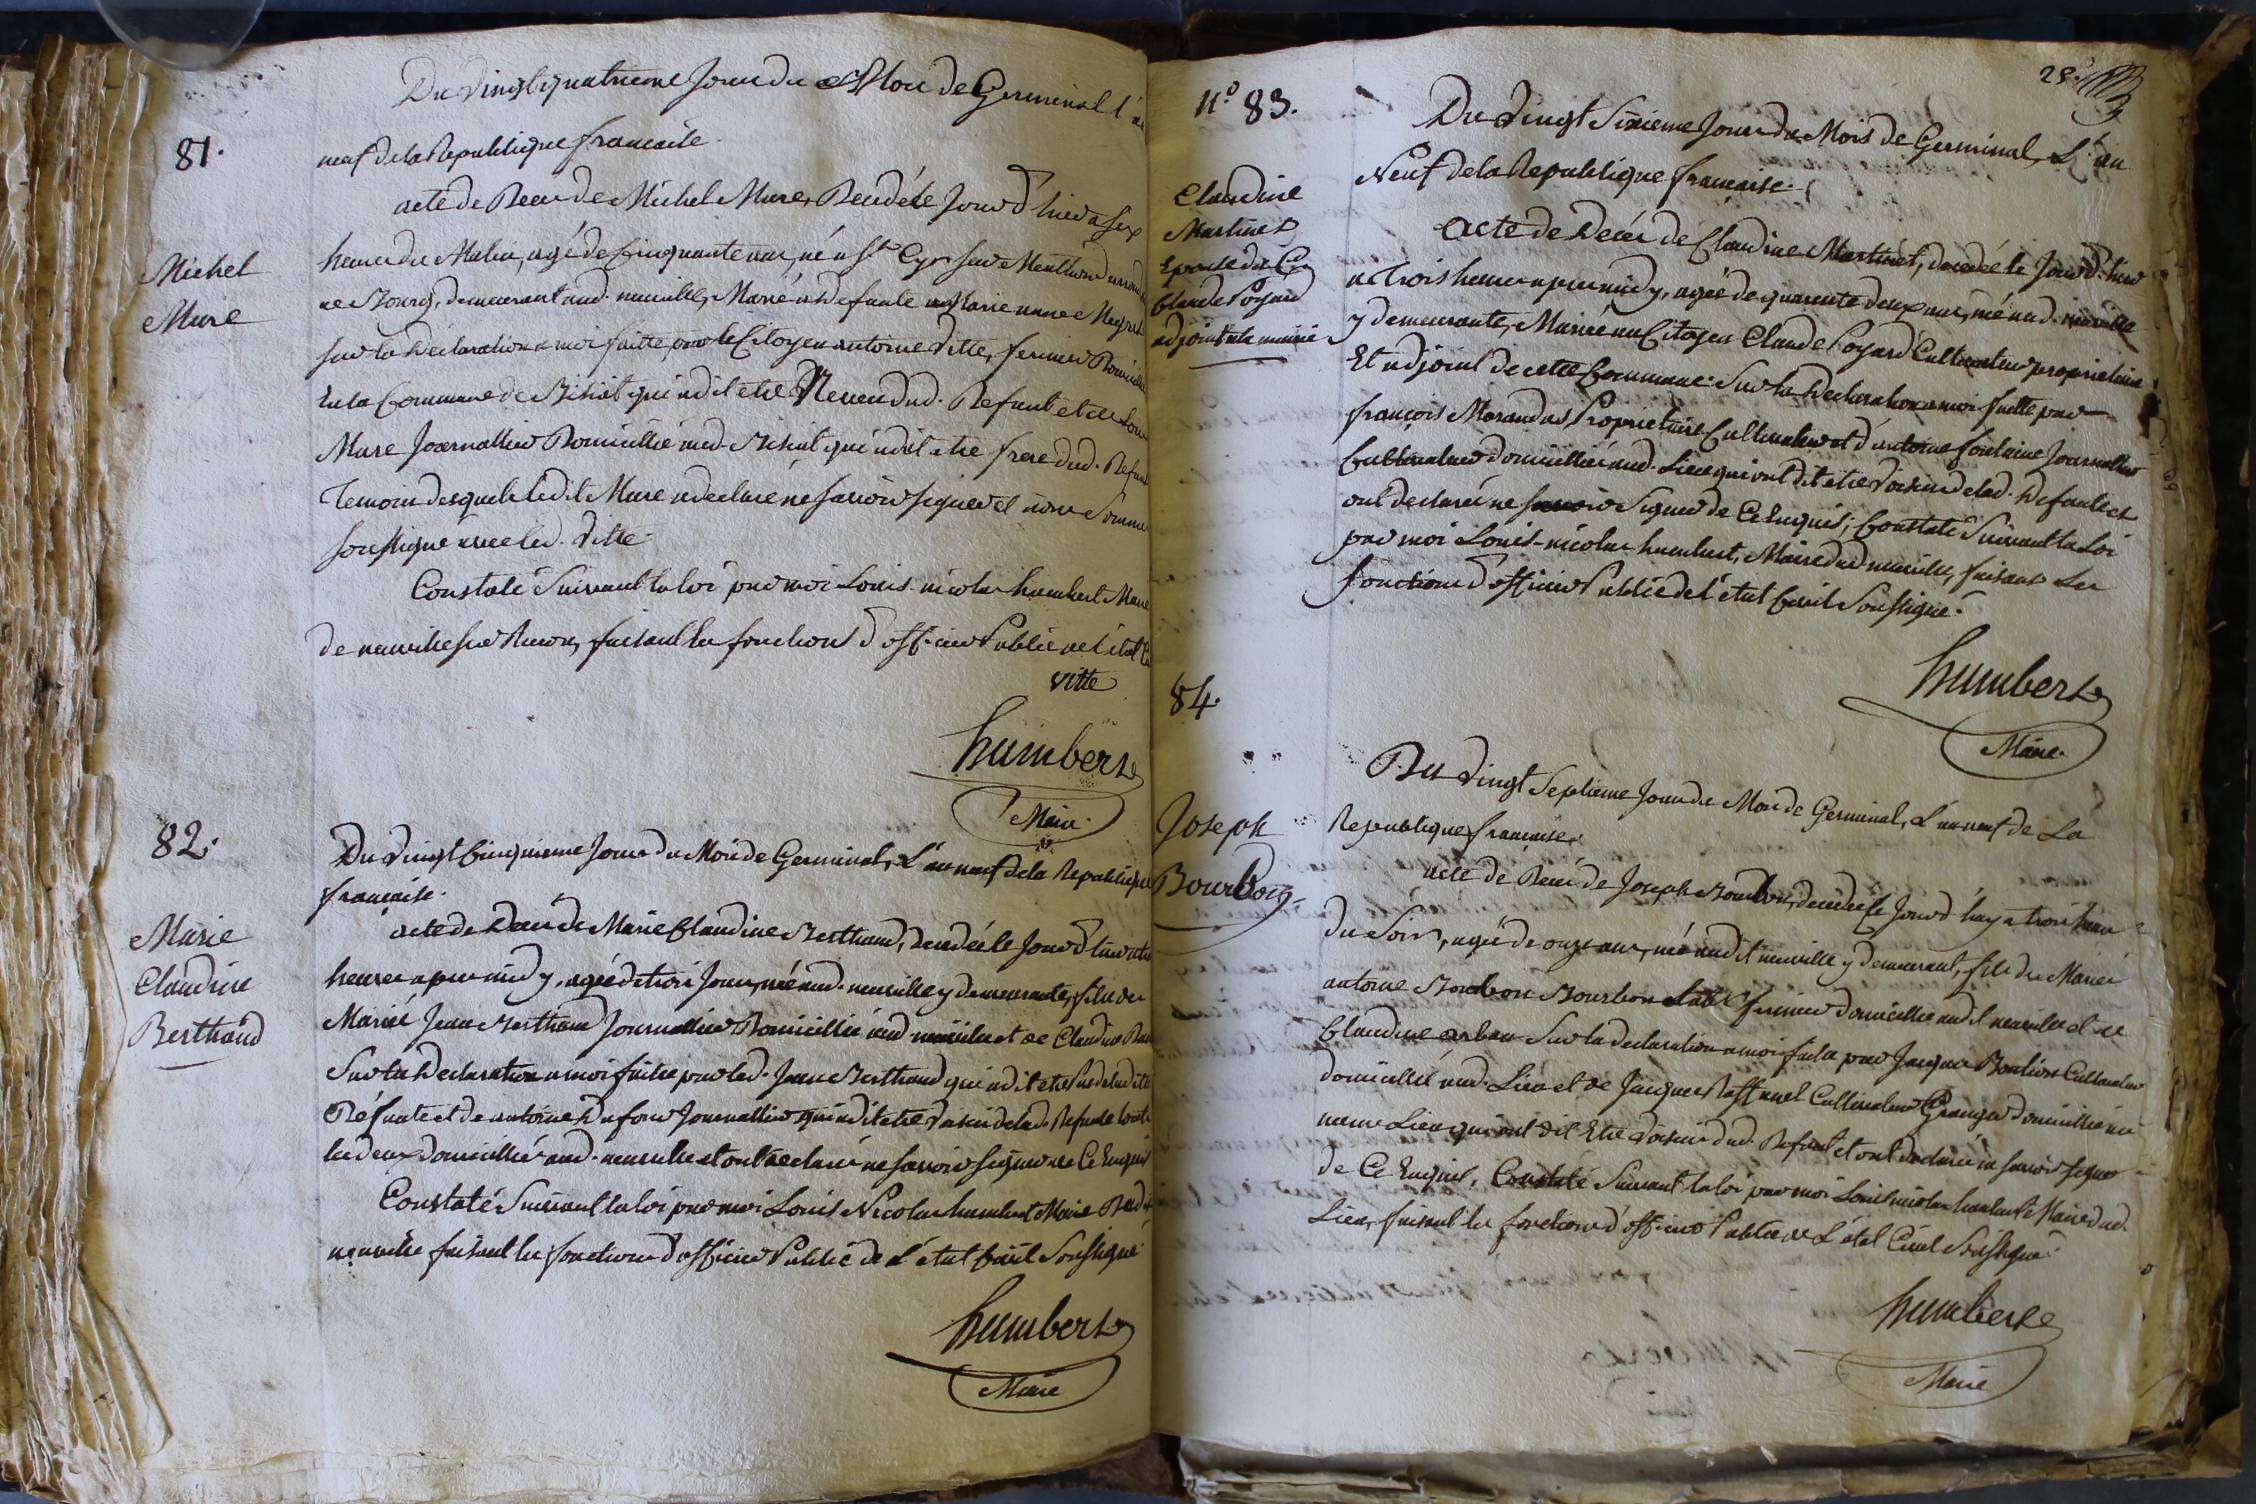 81.
Michel
Mure
Du Vingt quatrieme Jour du Mois de Germinal l'an
neuf de la Republique francaise.
acte de Deces de Michel Mure, Decedé le Jour d'hier a six
heures du Matin, agé de Cinquante ans, né a St. Cyr sur Menthon
de Bourg, demeurant aud. neuville, Marié a defunte Marie
sur la Déclaration a moi faitte par le Citoyen antoine Vitte, fermier Domicilié
En la Commune de qui a dit etre Neveu dud. Defunt et de
Mure Journallier Domicillié aud. qui a dit etre frere dud. Defunt
Temoins desquels ledit Mure a declaré ne savoir signer et nous sommes
soussigné avec led. Vitte.
Constaté Suivant la loi par moi Louis nicolas humbert Maire
de neuville sur Renon, faisant les fonctions d'officier Public de l'état
vitte
humbert
Maire.
82.
Marie
Claudine
Berthaud
Du Vingt Cinquieme Jour du Mois de Germinal, L'an neuf de la Republique
francaise.
acte de Deces de Marie Claudine Berthaud, decedée le Jour d'hier
heures apres midy, agée de trois Jours, née aud. neuville y demeurante, fille de
Marié Jean Berthaud Journallier Domicillié aud neuville et de Claudine
Sur la Declaration a moi faitte par led. Jean Berthaud qui a dit etre Pere de ladite
Défunte et de antoine Dufour Journallier qui a dit etre Voisin de lad. Defunte tous
les deux domicillié aud. neuville et ont declaré ne savoir signer de Ce Enquis
Constaté Suivant la loi par moi Louis Nicolas humbert Maire Dud
neuville faisant les fonctions d'officier Public de L'état Civil Soussigné
humbert
Maire
28.
N.º 83.
Claudine
Martinet
Epouse du Cen
Claude Poyard
adjoint a la mairie
Du Vingt Sixieme Jour du Mois de Germinal, L'an
Neuf de la Republique francaise.
Acte de Deces de Claudine Martinet, decedée le Jour d'hier
a Trois heures apres midy, agée de quarente deux ans, née aud. neuville
y demeurante, Mariée au Citoyen Claude Poyard Cultivateur proprietaire
Et adjoint de cette Commune. Sur la Declaration a moi faitte par
françois Morandas Proprietaire Cultivateur et d'antoine fontaine Journallier
Cultivateur domicillié aud. Lieu qui ont dit etre Voisins de lad. Defunte et
ont declaré ne savoir Signer de Ce Enquis; Constaté Suivant la Loi
par moi Louis nicolas humbert, Maire dud neuville, faisant les
fonctions d'officier Public de l'état Civil Soussigné.
humbert
Maire.
84.
Joseph
Bourbon
Du Vingt Septieme Jour du Mois de Germinal, L'an neuf de La
Republique francaise.
acte de Deces de Joseph Bourbon, decedé le Jour d'huy a trois heures
du Soir, agé de onze ans, né audit neuville y demeurant, fils de Marié
antoine Bourbon fermier domicillié audit neuville et de
Claudine Sur la declaration a moi faite par Jacques Cultivateur
domicillié aud. Lieu et de Jacques Raffanel Cultivateur Granger domicillié au
meme Lieu qui ont dit Etre Voisins dud. Defunt et ont declaré ne savoir signer
de Ce Enquis, Constaté Suivant la loi par moi Louis nicolas humbert Maire dud.
Lieu, faisant les fonctions d'officier Public de L'état Civil Soussigné.
humbert
Maire